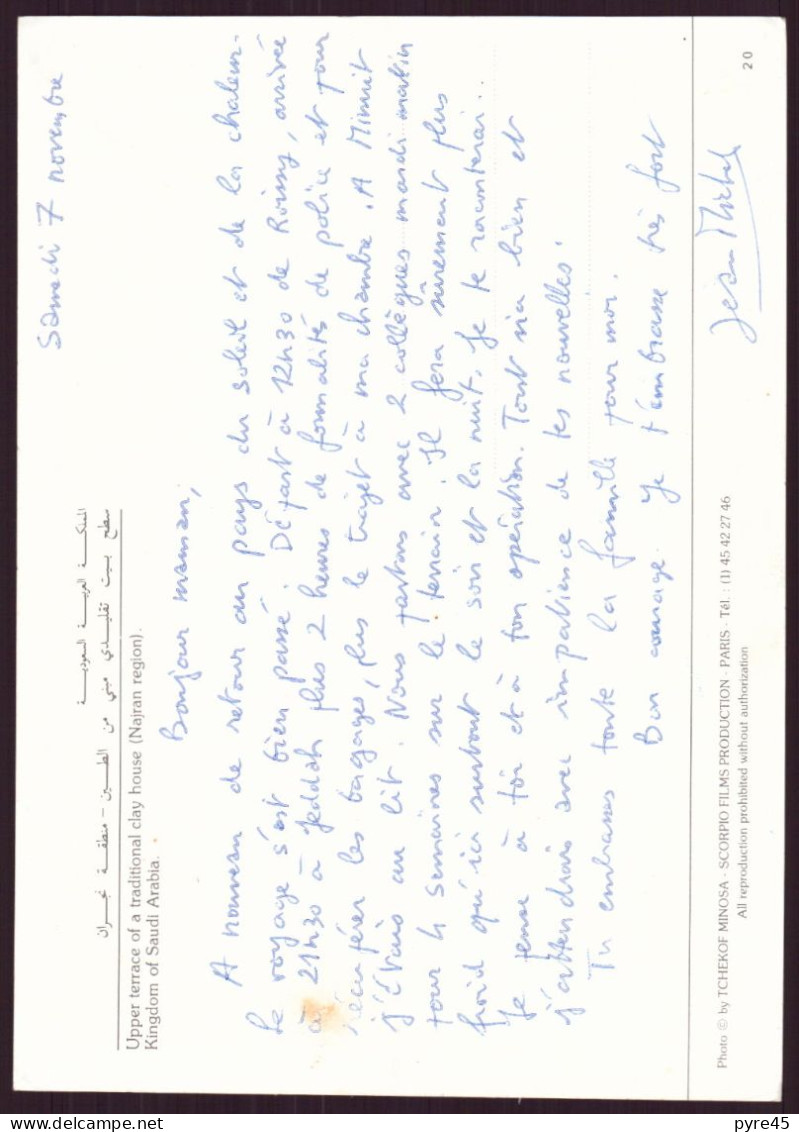 Samedi 7 novembre
المملكة العربية السعودية
سطح بيت تقليدي مبني من الطين - منطقة نجران
Upper terrace of a traditional clay house (Najran region).
Kingdom of Saudi Arabia.
Bonjour maman,
A nouveau de retour au pays du soleil et de la chaleur.
Le voyage s'est bien passé. Départ à 12h30 de Roissy, arrivée
à 21h30 à Jeddah plus 2 heures de formalités de police et pour
récupérer les bagages, plus le trajet à ma chambre. A Minuit
j'étais au lit. Nous partons avec 2 collègues mardi matin
pour 4 semaines sur le terrain. Il fera sûrement plus
froid qu'ici surtout le soir et la nuit, je te raconterai..
Je pense à toi et à ton opération. Tout ira bien et
j'attendrais avec impatience de tes nouvelles.
Tu embrasses toute la famille pour moi.
Bon courage. Je t'embrasse très fort
Jean Michel
Photo © by TCHEKOF MINOSA - SCORPIO FILMS PRODUCTION - PARIS - Tél. : (1) 45 42 27 46
All reproduction prohibited without authorization
20
pyre45